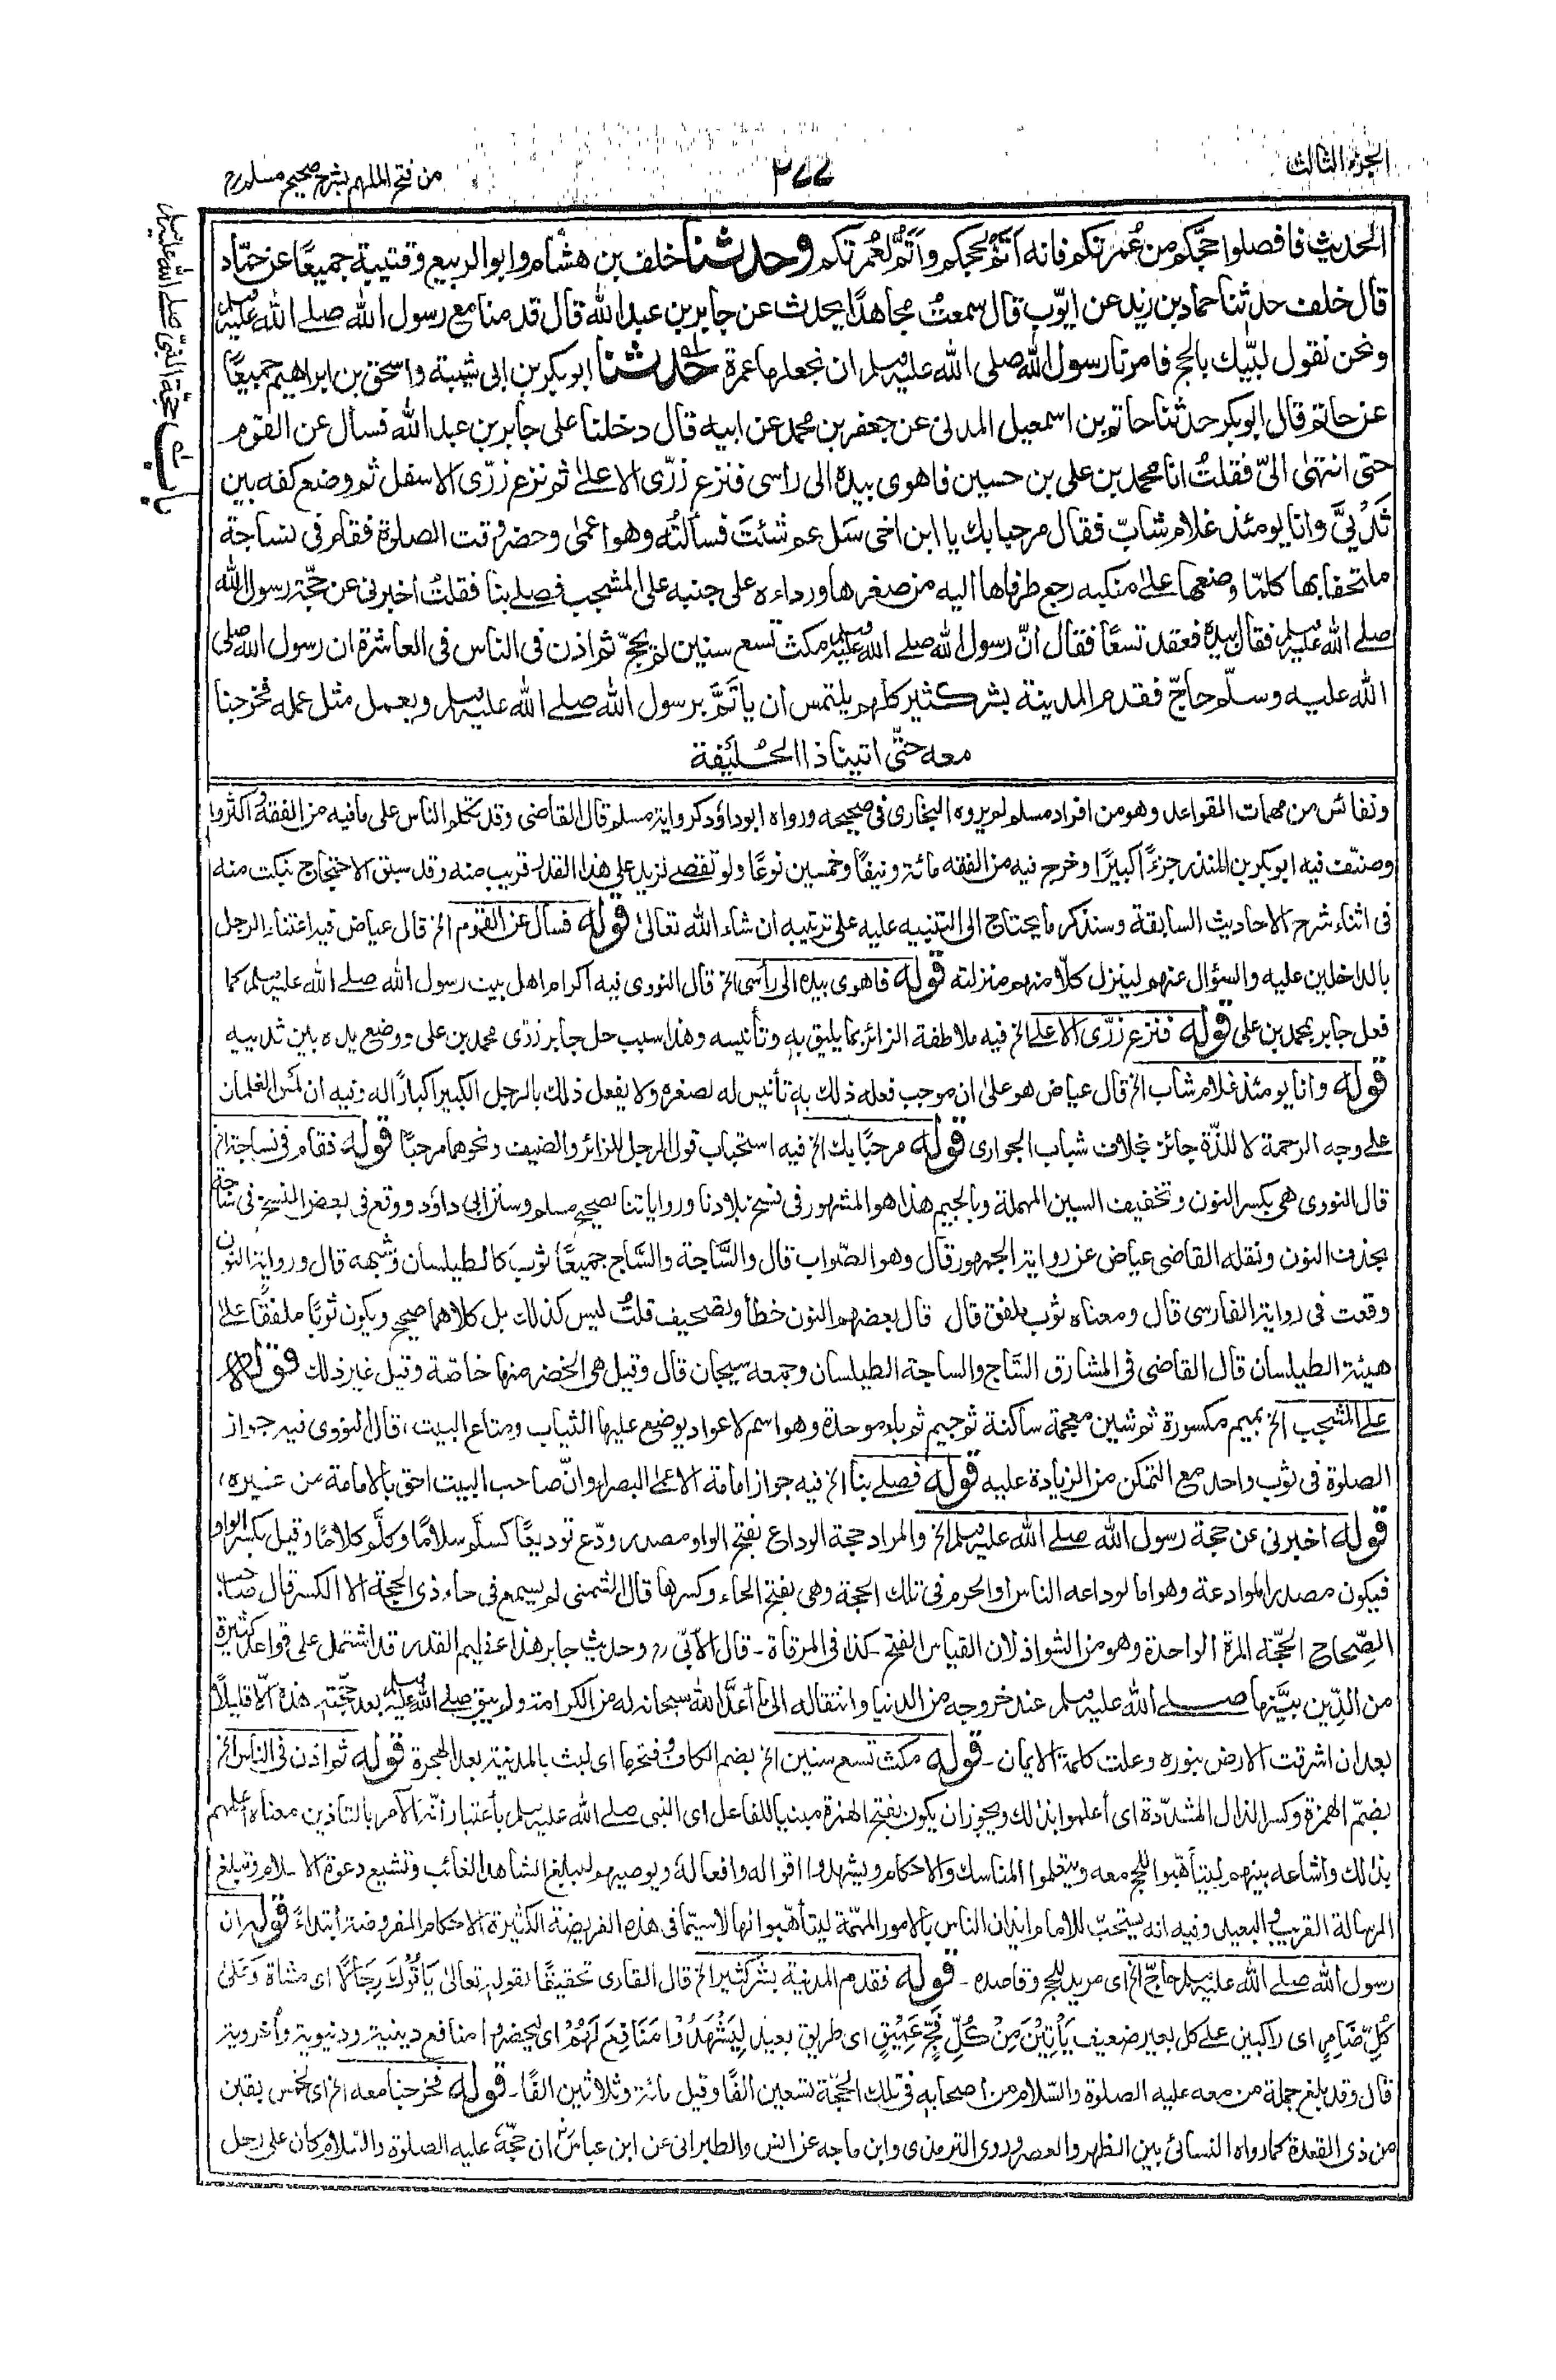 الجزء الثالث
٢٧٧
من فتح الملهم بشرح صحيح مسلم رح
باب حجة النبي صلى الله عليه وسلم
الحديث فافصلوا حجّكم من عُمرتكم فانه اَتَمُّ لحجكم واَتَمُّ لعُمرتكم وحدثنا خلف بن هشام وابو الربيع وقتيبة جميعًا عن حمّاد
قال خلف حدثنا حماد بن زيد عن ايّوب قال سمعتُ مجاهدًا يحدث عن جابر بن عبد الله قال قدمنا مع رسول الله صلے الله عليه وسلم
ونحن نقول لبّيك بالحج فامرنا رسول الله صلى الله عليه وسلم ان نجعلها عمرة حدثنا ابو بكر بن ابى شيبة واسحق بن ابراهيم جميعًا
عن حاتم قال ابو بكر حدثنا حاتم بن اسمعيل المدنى عن جعفر بن محمد عن ابيه قال دخلنا على جابر بن عبد الله فسأل عن القوم
حتى انتهٰى الىّ فقلتُ انا محمد بن على بن حسين فاهوى بيده الى رأسى فنزع زرّى الاعلىٰ ثم نزع زرّى الاسفل ثم وضع كفه بين
ثَدْيَىَّ وانا يومئذ غلام شابّ فقال مرحبا بك يا ابن اخى سَل عم شئتَ فسألتُه وهو اعمٰى وحضر وقت الصلوة فقام فى نساجة
ملتحفا بها كلمّا وضعها علىٰ منكبه رجع طرفاها اليه من صغرها ورداءه على جنبه على المشجب فصلے بنا فقلتُ اخبرنى عن حجّة رسول الله
صلے الله عليه وسلم فقال بيده فعقد تسعًا فقال انّ رسول الله صلے الله عليه وسلم مكث تسع سنين لم يحجّ ثم اذن فى الناس فى العاشرة ان رسول الله صلى
الله عليه وسلّم حاجّ فقدم المدينة بشر كثير كلهم يلتمس ان يأتَمَّ برسول الله صلے الله عليه وسلم ويعمل مثل عمله فخرجنا
معه حتّى اتينا ذا الحُليفة
ونفائس من مهمات القواعد وهو من افراد مسلم لم يروه البخارى فى صحيحه ورواه ابو داؤد كرواية مسلم قال القاضى وقد تكلم الناس على ما فيه من الفقه واكثروا
وصنّف فيه ابو بكر بن المنذر جزءًا كبيرًا وخرج فيه من الفقه مائة ونيفًا وخمسين نوعًا ولو تقصے لزيد على هذا القدر قريب منه وقد سبق الاحتجاج بنكت منه
فى اثناء شرح الاحاديث السابقة وسنذكر ما يحتاج الى التنبيه عليه على ترتيبه ان شاء الله تعالىٰ قوله فسأل عن القوم الخ قال عياض فيه اعتناء الرجل
بالداخلين عليه والسؤال عنهم لينزل كلّا منهم منزلته قوله فاهوى بيده الى رأسى الخ قال النووى فيه اكرام اهل بيت رسول الله صلے الله عليه وسلم كما
فعل جابر بمحمد بن على قوله فنزع زرّى الاعلے الخ فيه ملاطفة الزائر بما يليق به وتأنيسه وهذا سبب حل جابر زرّى محمد بن على ووضع يده بين ثدييه
قوله وانا يومئذ غلام شاب الخ قال عياض هو علىٰ ان موجب فعله ذلك به تأنيس له لصغره ولا يفعل ذلك بالرجل الكبير اكبارًا له وفيه ان لمس الغلمان
علے وجه الرحمة لا للذّة جائز بخلاف شباب الجوارى قوله مرحبًا بك الخ فيه استحباب قول الرجل للزائر والضيف ونحوهما مرحبًا قوله فقام فى نساجة الخ
قال النووى هى بكسر النون وتخفيف السين المهملة وبالجيم هذا هو المشهور فى نسخ بلادنا ورواياتنا لصحيح مسلم وسنن ابى داؤد ووقع فى بعض النسخ فى ساجة
بحذف النون ونقله القاضى عياض عن رواية الجمهور قال وهو الصّواب قال والسَّاجة والسَّاج جميعًا ثوب كالطيلسان وشبهه قال ورواية النون
وقعت فى رواية الفارسى قال ومعناه ثوب ملفق قال قال بعضهم النون خطأ وتصحيف قلتُ ليس كذلك بل كلاهما صحيح ويكون ثوبًا ملفقًا علىٰ
هيئة الطيلسان قال القاضى فى المشارق السَّاج والساجة الطيلسان وجمعه سيجان قال وقيل هى الخضر منها خاصّة وقيل غير ذلك قوله
على المشجب الخ بميم مكسورة ثم شين معجمة ساكنة ثم جيم ثم باء موحدة وهو اسم لاعواد يوضع عليها الثياب ومتاع البيت، قال النووى فيه جواز
الصلوة فى ثوب واحد مع التمكن من الزيادة عليه قوله فصلے بنا الخ فيه جواز امامة الاعمے البصراء وانّ صاحب البيت احق بالامامة من غيره،
قوله اخبرنى عن حجة رسول الله صلے الله عليه وسلم الخ والمراد حجة الوداع بفتح الواو مصدر ودّع توديعًا كسلّم سلامًا وكلَّم كلامًا وقيل بكسر الواو
فيكون مصدر الموادعة وهو اما لوداعه الناس او الحرم فى تلك الحجة وهى بفتح الحاء وكسرها قال الشمنى لم يسمع فى حاء ذى الحجة الا الكسر قال صاحب
الصِّحاح الحجّة المرة الواحدة وهو من الشواذ لان القياس الفتح - كذا فى المرقاة - قال الأبّى رح وحديث جابر هذا عظيم القدر قد اشتمل على قواعد كثيرة
من الدِّين بيَّنها صلے الله عليه وسلم عند خروجه من الدنيا وانتقاله الى ما أعدَّ الله سبحانه له من الكرامة ولم يبق صلے الله عليه وسلم بعد حجّته هذه الّا قليلًا
بعد ان اشرقت الارض بنوره وعلت كلمة الايمان - قوله مكث تسع سنين الخ بضم الكاف وفتحها اى لبث بالمدينة بعد الهجرة قوله ثم اذن فى الناس الخ
بضمّ الهمزة وكسر الذال المشدّدة اى أعلموا بذلك ويجوز ان يكون بفتح الهمزة مبنيا للفاعل اى النبى صلے الله عليه وسلم بأعتبار أنّه الآمر بالتاذين معناه اعلمهم
بذلك واشاعه بينهم ليتأهّبوا للحج معه ويتعلموا المناسك والاحكام ويشهدوا اقواله وافعاله ويوصيهم ليبلغ الشاهد الغائب وتشيع دعوة الاسلام وتبلغ
الرسالة القريب والبعيد وفيه انه يستحبّ للامام ايذان الناس بالامور المهمّة ليتأهّبوا لها لاسيّما فى هذه الفريضة الكثيرة الاحكام المفروضة أبتداءً قوله ان
رسول الله صلے الله عليه وسلم حاجّ الخ اى مريد للحج وقاصده - قوله فقدم المدينة بشر كثير الخ قال القارى تحقيقًا لقوله تعالىٰ يَأْتُوْكَ رِجَالًا اى مشاة وَعَلىٰ
كُلِّ ضَامِرٍ اى راكبين علے كل بعير ضعيف يَأْتِيْنَ مِنْ كُلِّ فَجٍّ عَمِيْقٍ اى طريق بعيد لِيَشْهَدُوْا مَنَافِعَ لَهُمْ اى ليحضروا منافع دينية ودنيوية وأخروية
قال وقد بلغ جملة من معه عليه الصلوة والسّلام من اصحابه فى تلك الحجّة تسعين الفًا وقيل مائة وثلاثين الفًا - قوله فخرجنا معه الخ اى لخمس بقين
من ذى القعدة كما رواه النسائى بين الظهر والعصر وروى الترمذى وابن ماجه عن انس والطبرانى عن ابن عباس ان حجّه عليه الصلوة والسّلام كان على رحل